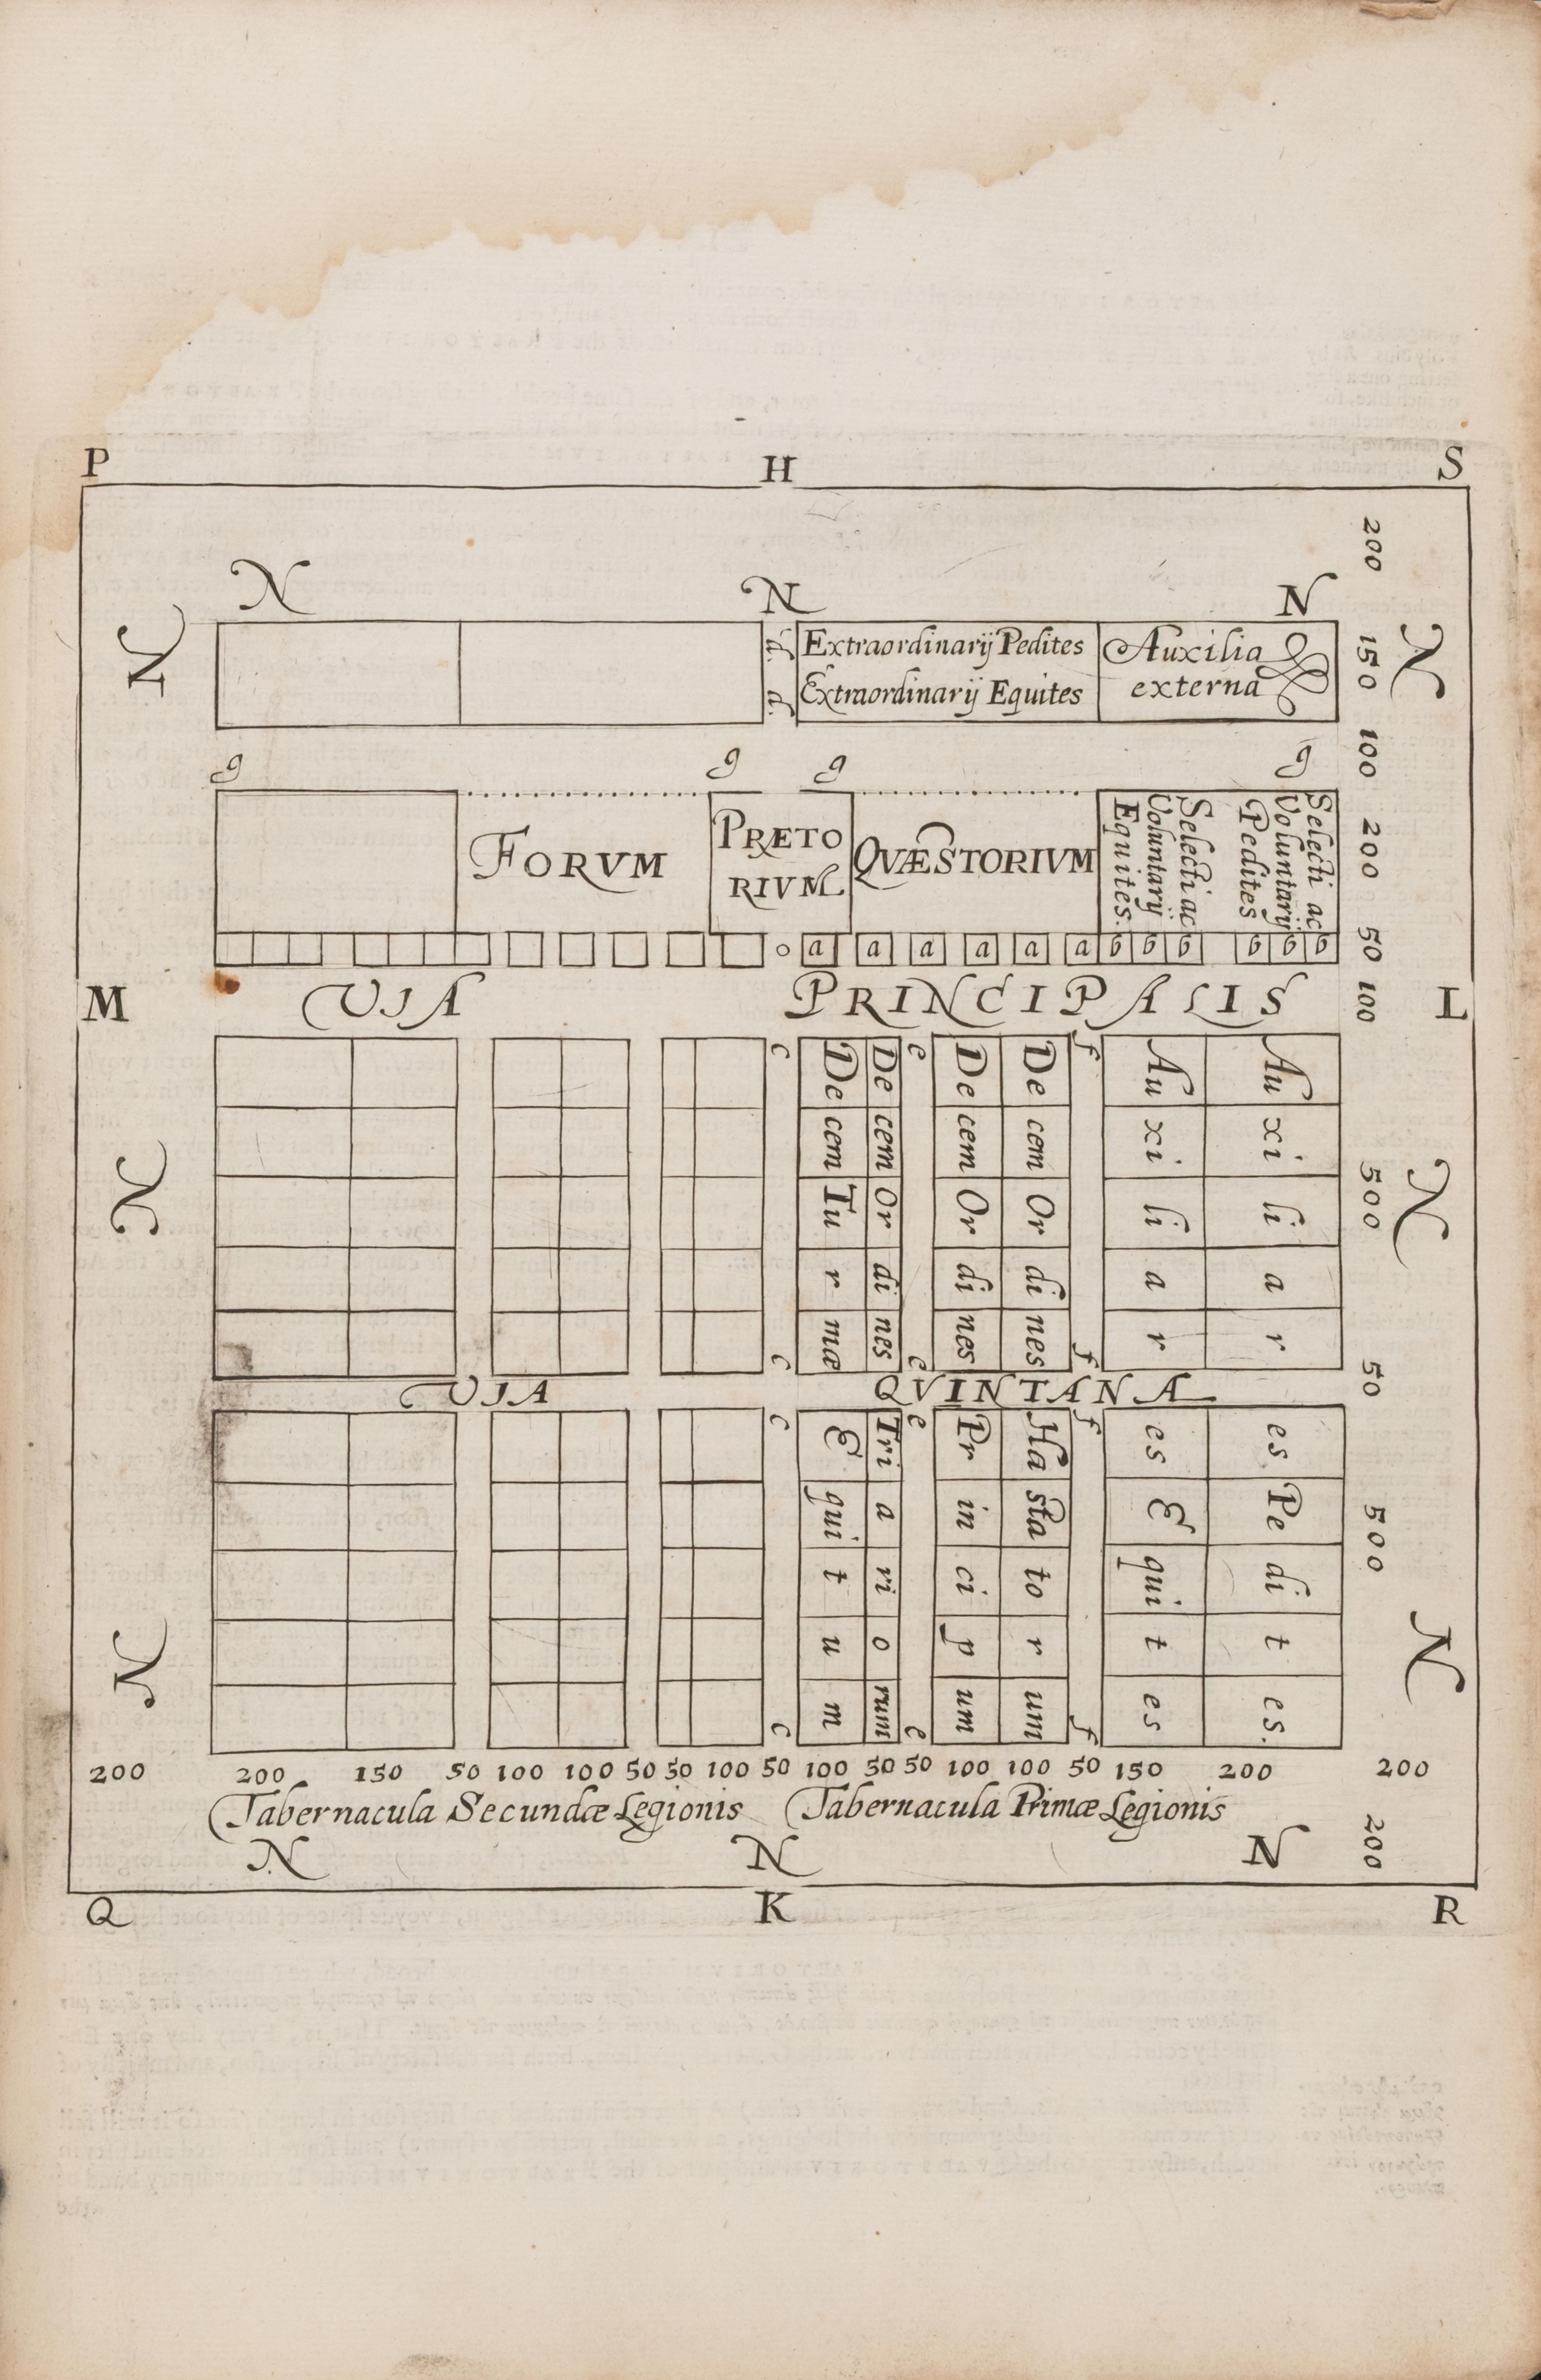 P H S
200
N N N
N Extraordinarij Pedites Auxilia 150 N
Extraordinarij Equites externa
100
g g g g
FORVM PRÆTO
RIVM QVÆSTORIVM Selecti ac Voluntarij Equites. Selecti ac Voluntarij Pedites 200
o a a a a a a b b b b b b 50
M VIA PRINCIPALIS 100 L
c e f
De De De De Au Au
cem cem cem cem xi xi
N Tu Or Or Or li li 500 N
r di di di a a
mæ nes nes nes r r
c e f
VIA QVINTANA 50
c e f
E Tri Pr Ha es es
qui a in sta E Pe
t ri ci to qui di 500
N u o p r t t N
m rum um um es es.
c e f
200 200 150 50 100 100 50 50 100 50 100 50 50 100 100 50 150 200 200
Tabernacula Secundæ Legionis Tabernacula Primæ Legionis
200
N N N
Q K R